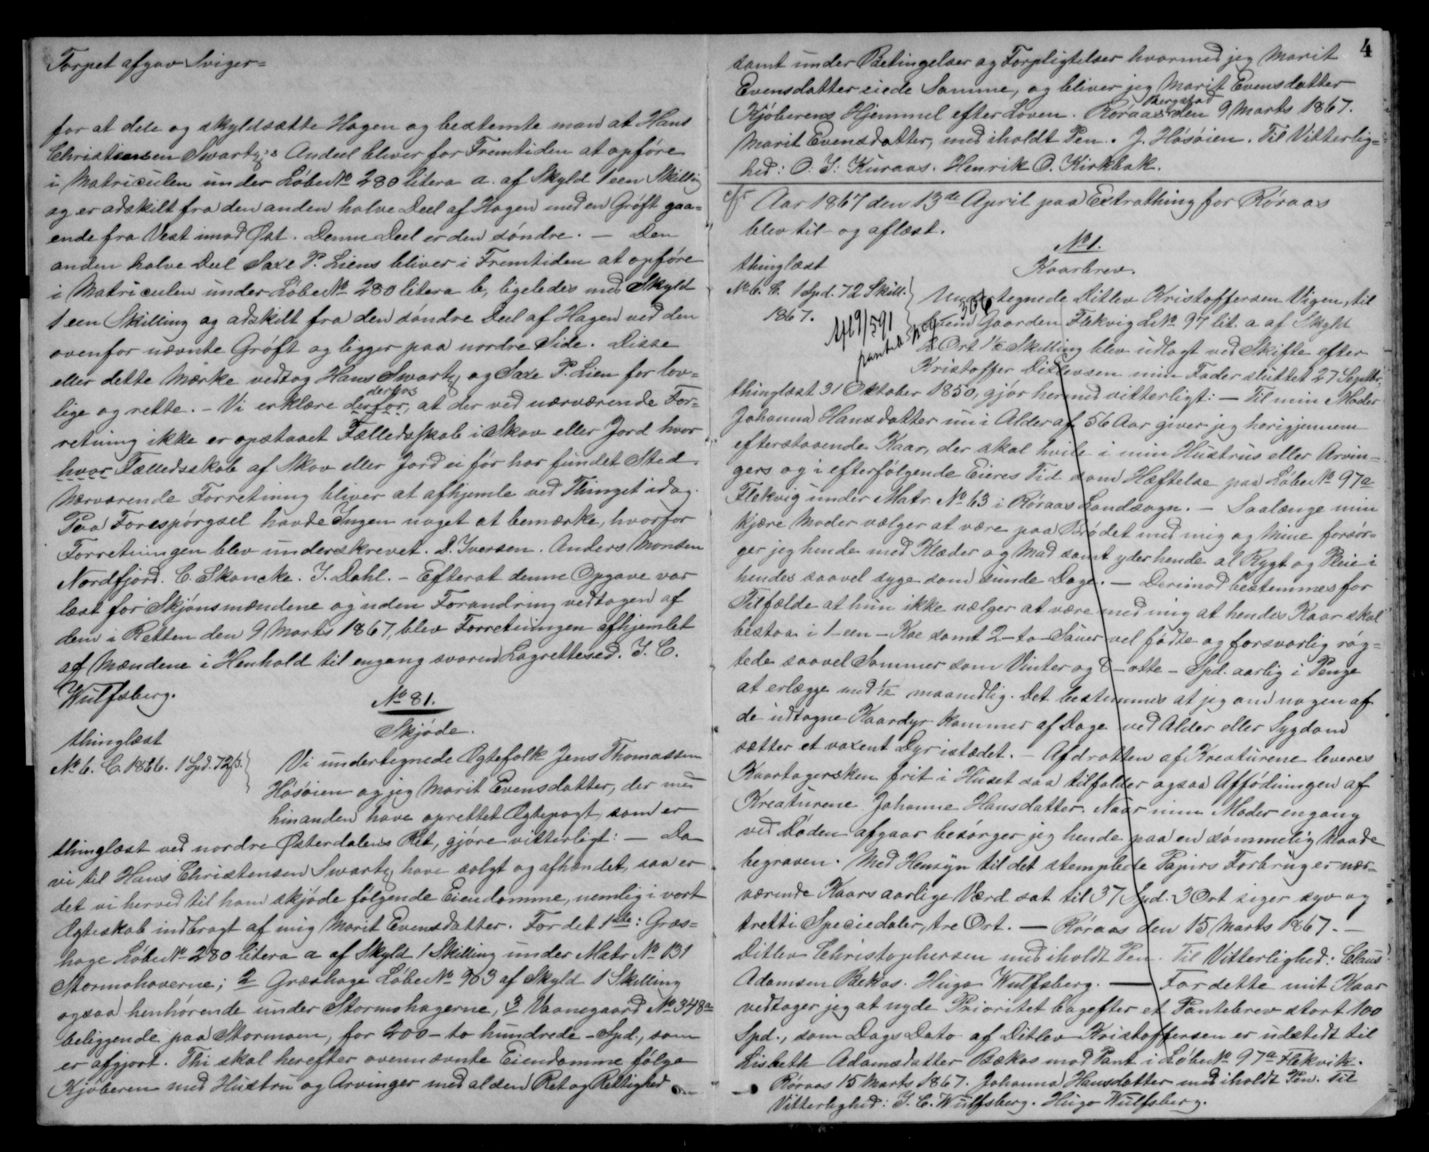 Torpet afgav Sviger=
for at dele og skyldsætte Hagen og bestemte man at Hans
Christensen Swartz's Andeel bliver for Fremtiden at opføre
i Matriculen under Løbe No 280 litera a. af Skyld 1 een Skilling
og er adskilt fra den anden halve Deel af Hagen med en Grøft gaa=
ende fra Vest imod Øst. Denne Deel er den søndre. — Den
anden halve Deel Saxe P. Liens bliver i Fremtiden at opføre
i Matriculen under Løbe No 280 litera b, ligeledes med Skyld
1 een Skilling og adskilt fra den søndre Deel af Hagen ved den
ovenfor nævnte Grøft og ligger paa nordre Side. Disse
eller dette Mærke vedtog Hans Swartz og Saxe P. Lien for lov=
lige og rette. – Vi erklære derfor, at der ved nærværende For=
retning ikke er opstaaet Fælledsskab i Skov eller Jord hvor
hvor Fælledsskab af Skov eller Jord ei før har fundet Sted.
Nærværende Forretning bliver at afhjemle ved Thinget idag.
Paa Forespørgsel havde Ingen noget at bemærke, hvorfor
Forretningen blev underskrevet. D. Iversen. Anders Monsen
Nordfjord. C. Skancke. J. Dahl. – Efterat denne Opgave var
læst for Skjønsmændene og uden Forandring vedtagen af
dem i Retten den 9 Marts 1867, blev Forretningen afhjemlet
af Mændene i Henhold til engang svoren Lagrettesed. J. C.
Wulfsberg.
No 81.
Skjøde.
thinglæst
No 6. C. 1866. 1 Spd. 72 ß.
Vi undertegnede Ægtefolk Jens Thomassen
Høsøien og jeg Marit Evensdatter, der med
hinanden have oprettet Ægtepagt, som er
thinglæst ved nordre Østerdalens Ret, gjøre vitterligt: — Da
vi til Hans Christensen Swartz have solgt og afhændet, saa er
det vi herved til ham skjøde følgende Eiendomme, nemlig i vort
Ægteskab indbragt af mig Marit Evensdatter. For det 1ste: Græs=
hage Løbe No 280 litera a af Skyld 1 Skilling under Matr No 131
Stormohaverne; 2 Græshage Løbe No 303 af Skyld 1 Skilling
ogsaa henhørende under Stormohagerne, 3 Vaanegaard No 348a
beliggende paa Stormoen, for 200 – to hundrede – Spd., som
er afgjort. Thi skal herefter ovennævnte Eiendomme følge
Kjøberen med Hustru og Arvinger med al den Ret og Rettighed
4
samt under Betingelser og Forpligtelser hvormed jeg Marit
Evensdatter eiede Samme, og bliver jeg Marit Evensdatter
Kjøberens Hjemmel efter Loven. Røraas Bergstad den 9 Marts 1867.
Marit Evensdatter, med iholdt Pen. J. Høsøien. Til Vitterlig=
hed: O. J. Kuraas. Henrik O. Kirkbak.
Aar 1867 den 13de April paa Extrathing for Røraas
blev til- og aflæst.
No 1.
Kaarbrev.
thinglæst
No 6. C. 1 Spd. 72 Skill.
1867.
Undertegnede Ditlev Kristoffersen Vigen, til
hvem Gaarden Flekvig L No 97 lit. a af Skyld
Ort 1½ Skilling blev udlagt ved Skifte efter
Kristoffer Ditlevsen min Fader sluttet 27 Septbr.
thinglæst 31 Oktober 1850, gjør hermed vitterligt: — Til min Moder
Johanna Hansdatter nu i Alder af 56 Aar giver jeg herigjennem
efterstaaende Kaar, der skal hvile i min Hustrus eller Arvin=
gers og i efterfølgende Eieres Tid som Hæftelse paa Løbe No 97a
Flekvig under Matr. No 63 i Røraas Landsogn. — Saalænge min
kjære Moder vælger at være paa Brødet med mig og Mine forsør=
ger jeg hende med Klæder og Mad samt yder hende al Rygt og Pleie i
hendes saavel syge som sunde Dage. — Derimod bestemmes for
Tilfælde at hun ikke vælger at være med mig at hendes Kaar skal
bestaa i 1–een–Koe samt 2–to–Sauer vel fødte og forsvarlig røg=
tede saavel Sommer som Vinter og 8–otte–Spd. aarlig i Penge
at erlægge med 1/12 maandlig. Det bestemmes at jeg om nogen af
de udtagne Kaardyr kommer af Dage ved Alder eller Sygdom
sætter et voxent Dyr istedet. – Afdrotten af Kreaturene leveres
Kaartagersken frit i Huset saa tilfalder ogsaa Afføđningen af
Kreaturene Johanne Hansdatter. Naar min Moder engang
ved Døden afgaar besørger jeg hende paa en sømmelig Maade
begraven. Med Hensyn til det stemplede Papirs Forbrug er nær=
værende Kaars aarlige Værd sat til 37 Spd. 3 Ort siger syv og
tretti Speciedaler, tre Ort. — Røraas den 15 Marts 1867. –
Ditlev Christophersen med iholdt Pen. Til Vitterlighed: Claus
Adamsen Bekos. Hugo Wulfsberg. — Fordette mit Kaar
vedtager jeg at nyde Prioritet bagefter et Pantebrev stort 100
Spd., som Dags Dato af Ditlev Kristoffersen er udstedt til
Lisbeth Adamsdatter Bækos mod Pant i Løbe No 97a Flekvik.
Røraas 15 Marts 1867. Johanna Hansdatter med iholdt Pen. Til
Vitterlighed: J. C. Wulfsberg. Hugo Wulfsberg.